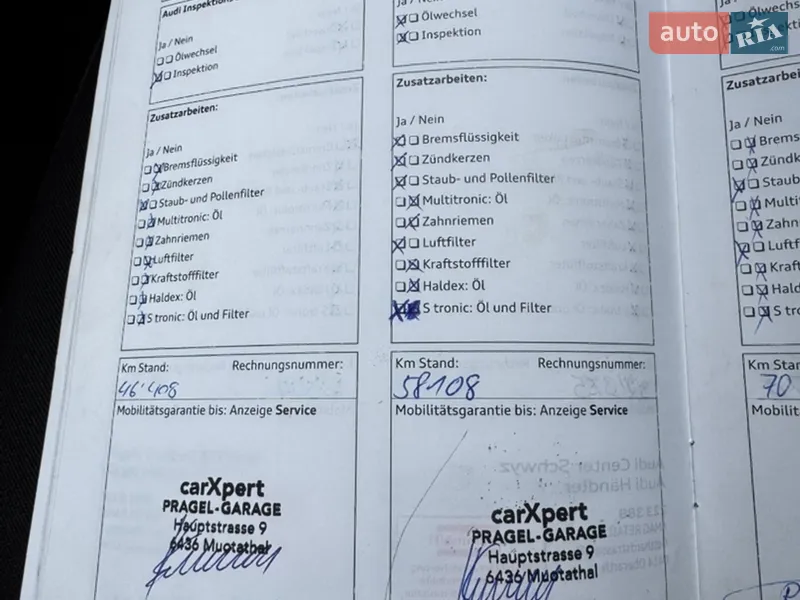 Audi Inspektion
Ja / Nein
Ölwechsel
Inspektion
Zusatzarbeiten:
Ja / Nein
Bremsflüssigkeit
Zündkerzen
Staub- und Pollenfilter
Multitronic: Öl
Zahnriemen
Luftfilter
Kraftstofffilter
Haldex: Öl
S tronic: Öl und Filter
Km Stand: Rechnungsnummer:
46'408
Mobilitätsgarantie bis: Anzeige Service
carXpert
PRAGEL-GARAGE
Hauptstrasse 9
6436 Muotathal
Ölwechsel
Inspektion
Zusatzarbeiten:
Ja / Nein
Bremsflüssigkeit
Zündkerzen
Staub- und Pollenfilter
Multitronic: Öl
Zahnriemen
Luftfilter
Kraftstofffilter
Haldex: Öl
S tronic: Öl und Filter
Km Stand: Rechnungsnummer:
58108
Mobilitätsgarantie bis: Anzeige Service
Audi Center Schwyz
Audi Händler
carXpert
PRAGEL-GARAGE
Hauptstrasse 9
6436 Muotathal
Zusatzarbeiten
Ja / Nein
Brems
Zündk
Staub
Multi
Zahn
Luftf
Kraft
Halde
S tro
Km Stand:
70
Mobilit
auto RIA .com